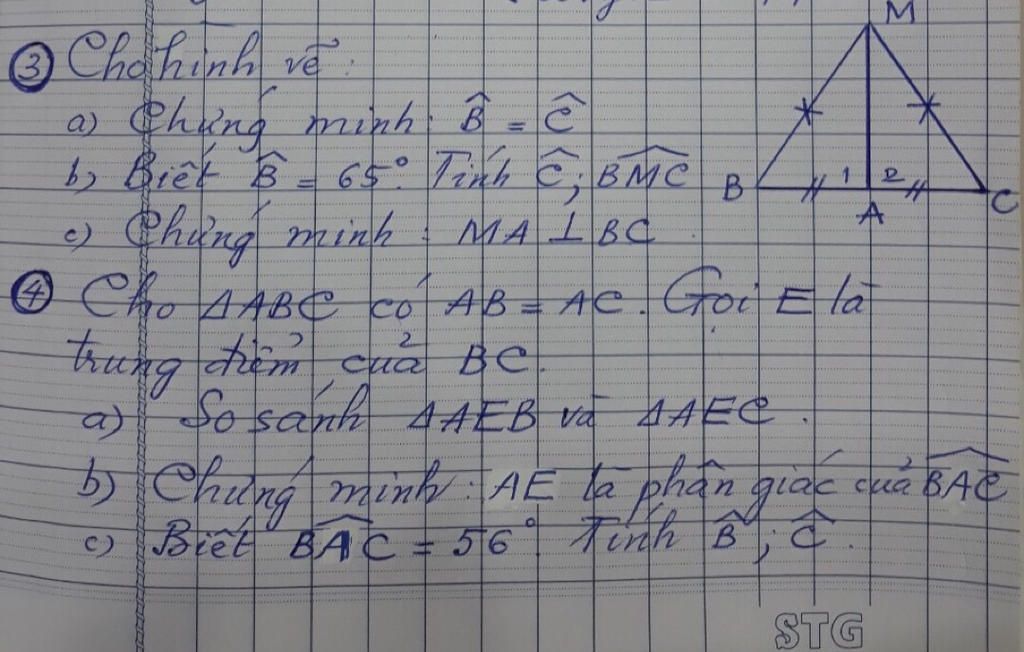 ③ Cho hình vẽ :
M
a) Chứng minh: B̂ = Ĉ
b) Biết B̂ = 65°. Tính Ĉ; BMC
B 1 2 C
A
c) Chứng minh : MA ⊥ BC.
④ Cho ΔABC có AB = AC. Gọi E là
trung điểm của BC.
a) So sánh ΔAEB và ΔAEC.
b) Chứng minh: AE là phân giác của BAC
c) Biết BAC = 56°. Tính B̂ ; Ĉ.
STG